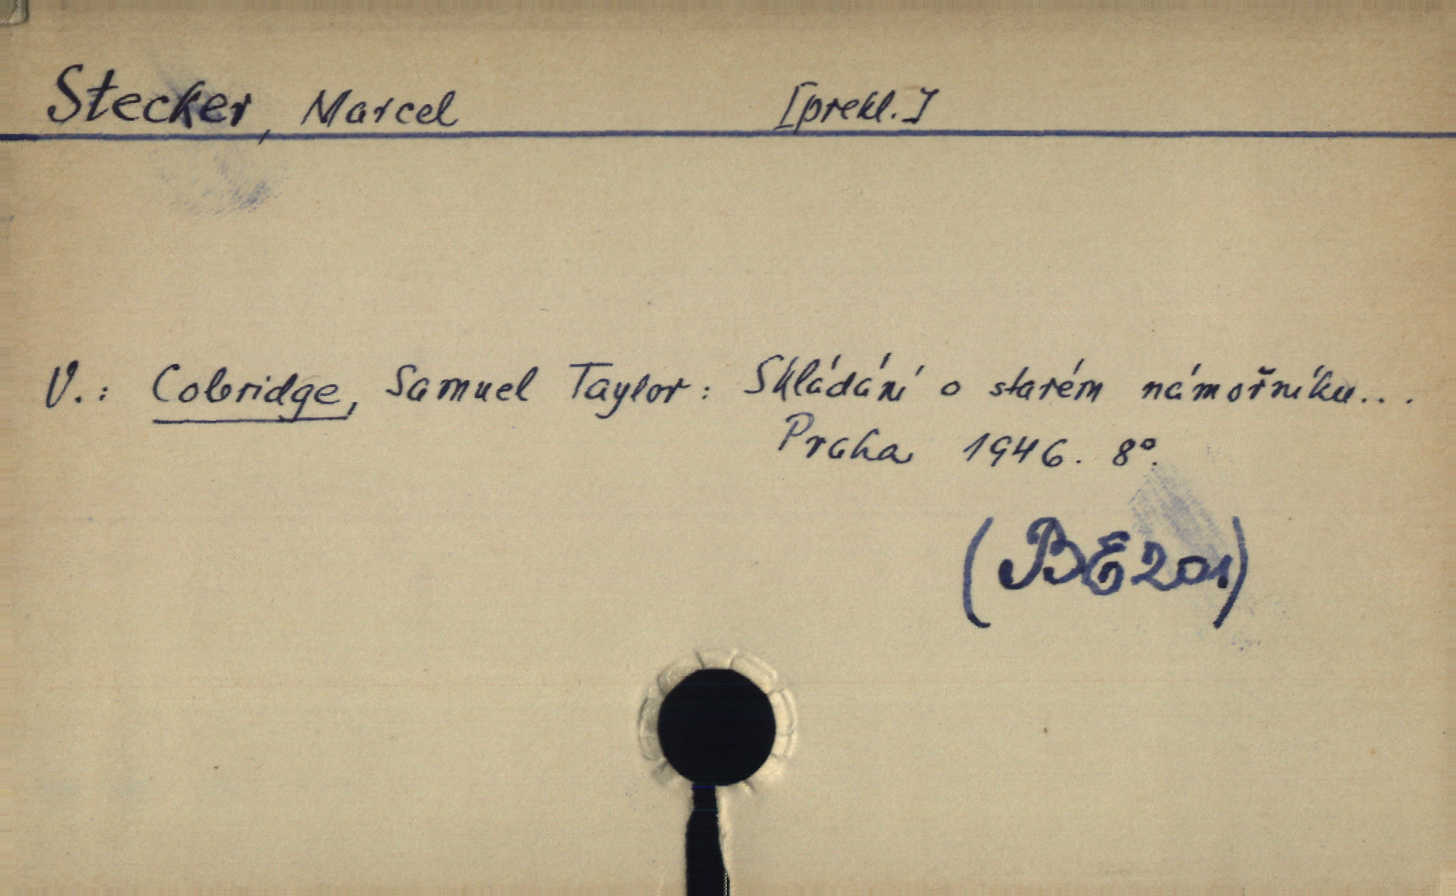 Stecker, Marcel [prekl.]
V.: Coleridge, Samuel Taylor: Skládání o starém námořníku...
Praha 1946. 8°.
(BE201)